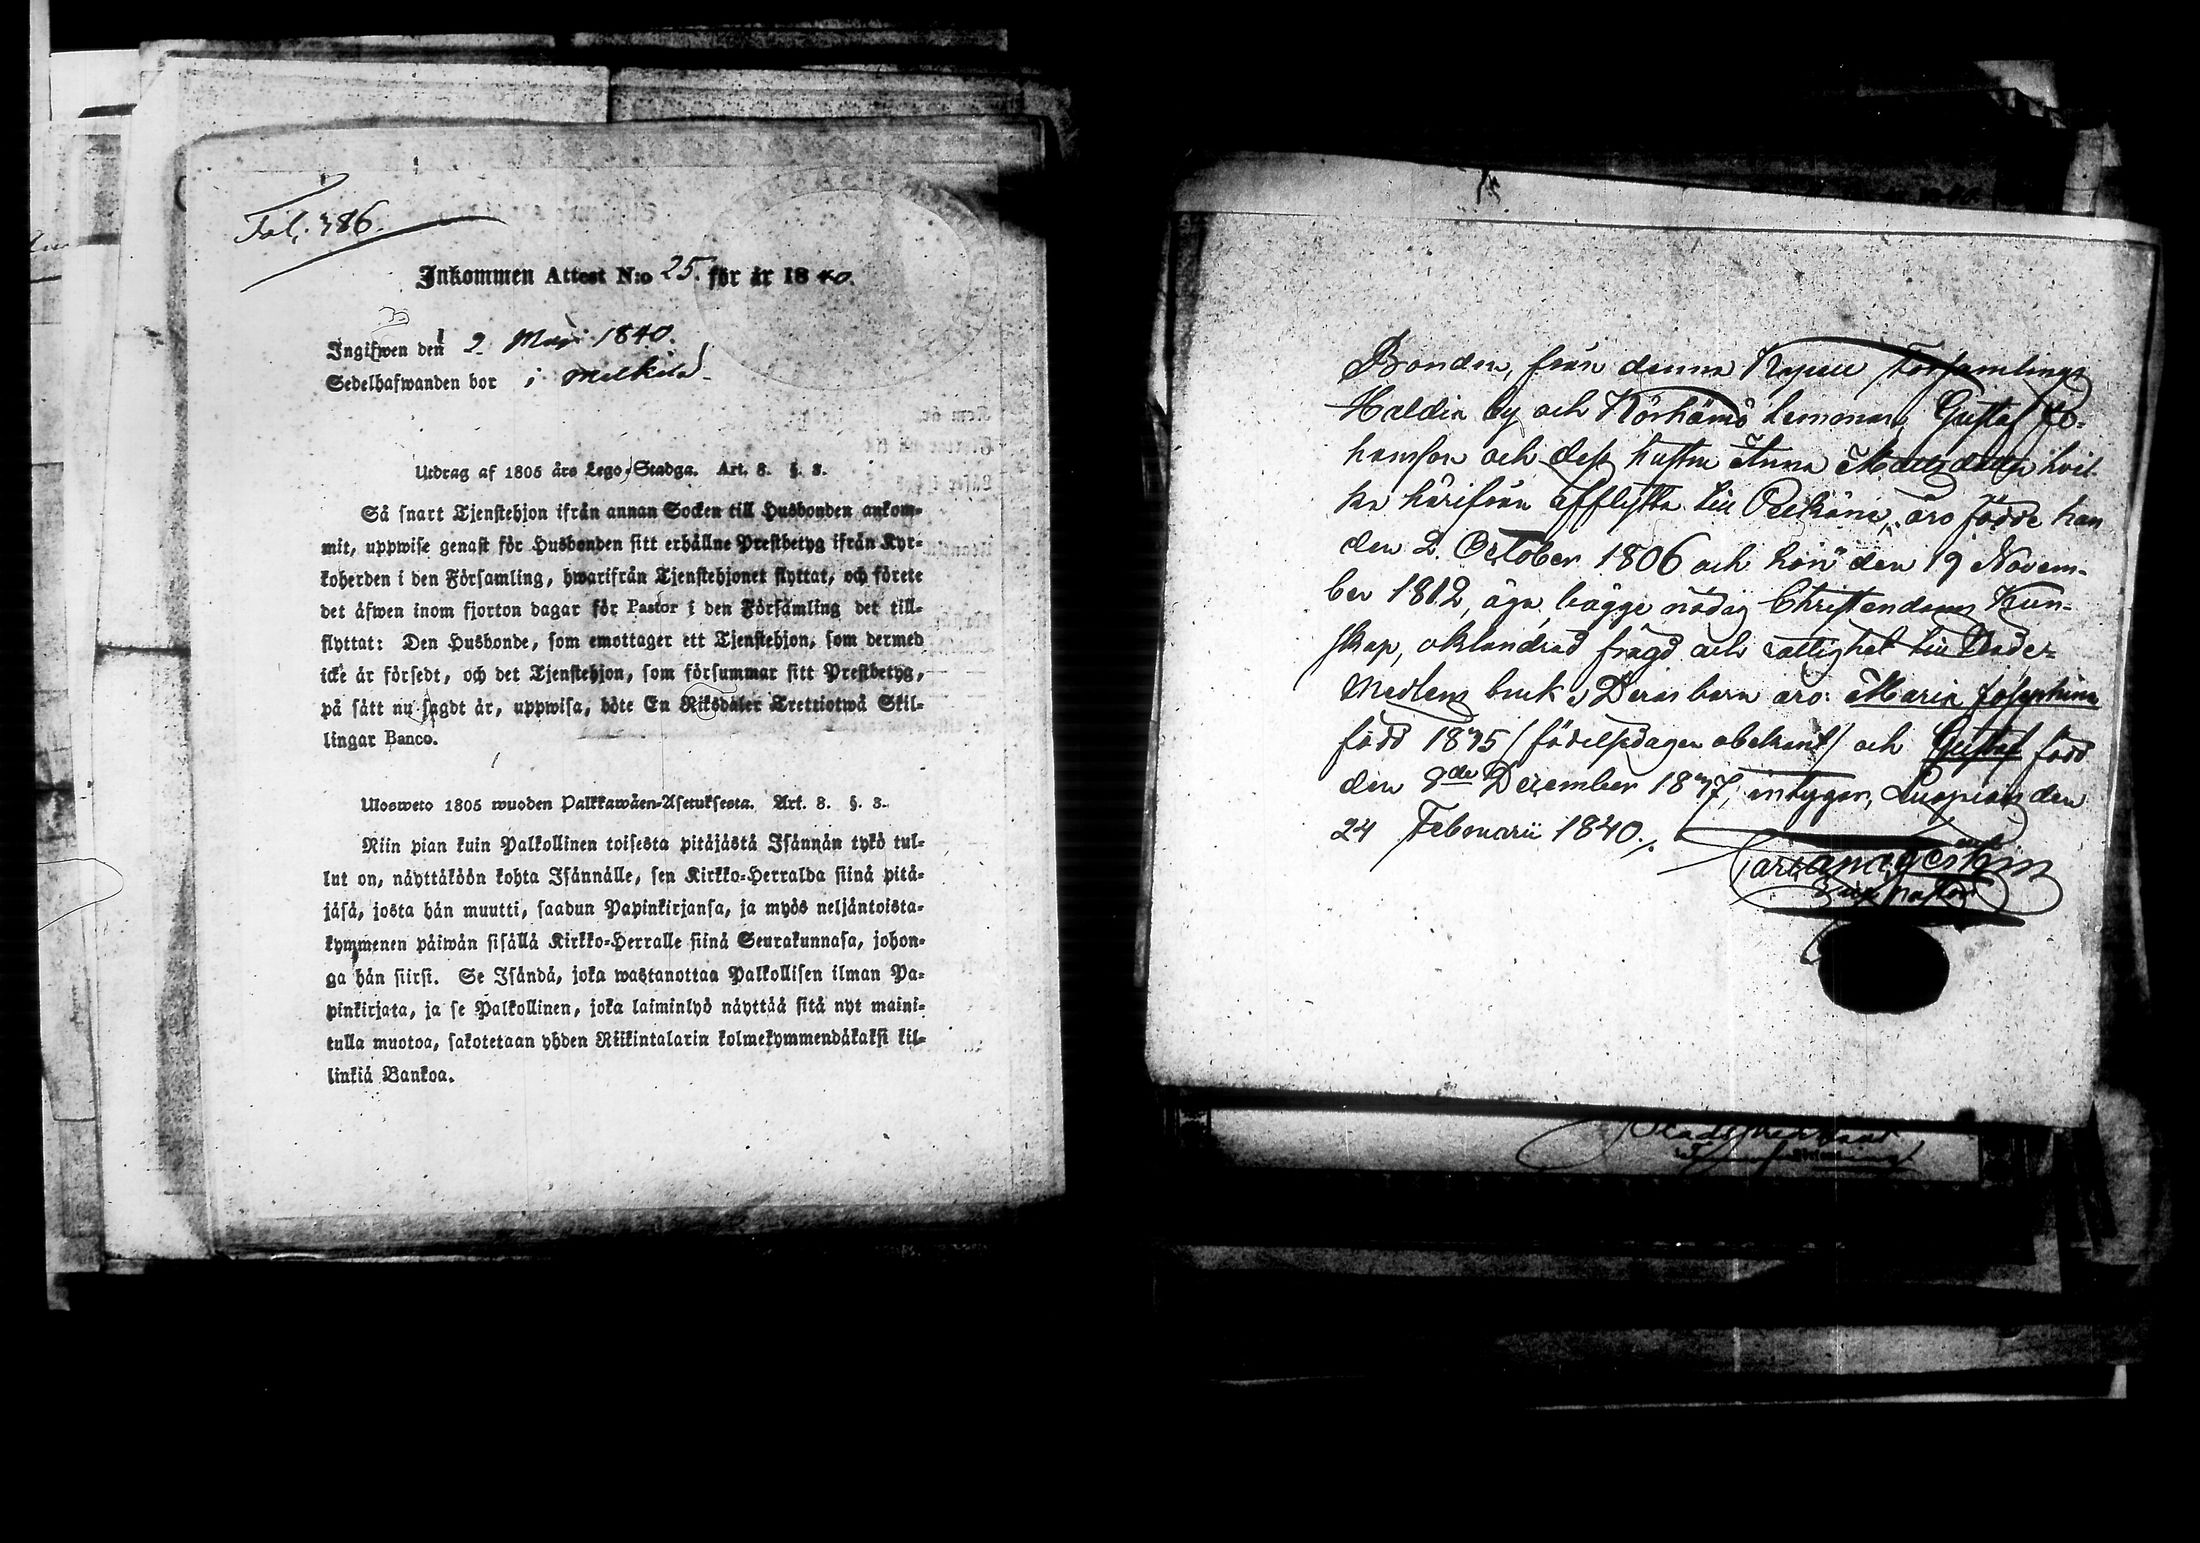 Fol. 386.
Inkommen Attest N:o 25. för år 1840.
Ingifwen den 2 Maji 1840.
Sedelhafwanden bor i Melkila
Utdrag af 1805 års Lego-Stadga. Art. 8. §. 3.
Så snart Tjenstehjon ifrån annan Socken till Husbonden ankom-
mit, uppwise genast för Husbonden sitt erhållne Prestbetyg ifrån Kyr-
koherden i den Församling, hwarifrån Tjenstehjonet flyttat, och förete
det äfwen inom fjorton dagar för Pastor i den Församling det till-
flyttat: Den Husbonde, som emottager ett Tjenstehjon, som dermed
icke är försedt, och det Tjenstehjon, som försummar sitt Prestbetyg,
på sätt nu sagdt är, uppwisa, böte En Riksdaler Trettiotwå Skil-
lingar Banco.
Ulosweto 1805 wuoden Palkkawäen-Asetuksesta. Art. 8. §. 3.
Niin pian kuin Palkollinen toisesta pitäjästä Isännän tykö tul-
lut on, näyttäköön kohta Isännälle, sen Kirkko-Herralda siinä pitä-
jäsä, josta hän muutti, saadun Papinkirjansa, ja myös neljäntoista-
kymmenen päiwän sisällä Kirkko-Herralle siinä Seurakunnasa, johon-
ga hän siirsi. Se Isändä, joka wastanottaa Palkollisen ilman Pa-
pinkirjata, ja se Palkollinen, joka laiminlyö näyttää sitä nyt maini-
tulla muotoa, sakotetaan yhden Riikintalarin kolmekymmendäkaksi kil-
linkiä Bankoa.
Bonden, från denna Kapell Församlings
Haldia by och hemman, Gustaf Jo-
hansson och dess hustru Anna Mattsdotter hvil-
ka härifrån afflytta till Pelkäne, äro födde han
den 2. October 1806 och hon den 19 Novem-
ber 1812, äga bägge nödig Christendoms Kun-
skap, oklandrad frägd och rättighet till Nader-
Medlens bruk; Deras barn äro: Maria Josephina
född 1835 /födelsedagen obekant/ och Gustaf född
den 8de December 1837, intygar, Luopiois den
24 Februarii 1840.